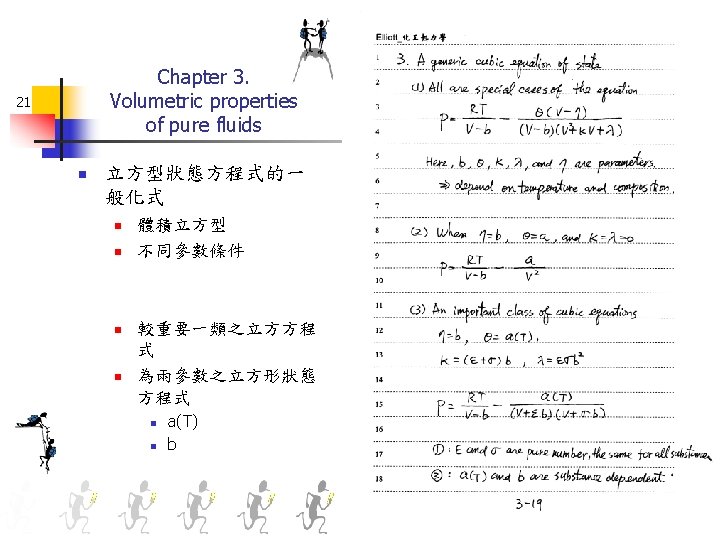 21
Chapter 3.
Volumetric properties
of pure fluids
立方型狀態方程式的一
般化式
體積立方型
不同參數條件
較重要一類之立方方程
式
為兩參數之立方形狀態
方程式
a(T)
b
Elliott_化工熱力學
1 3. A generic cubic equation of state
2 (1) All are special cases of the equation
3 P = RT/(V-b) - θ(V-η)/((V-b)(V²+κV+λ))
4
5 Here, b, θ, κ, λ, and η are parameters.
6 ⇒ depend on temperature and composition.
7
8 (2) When η=b, θ=a, and κ=λ=0
9 P = RT/(V-b) - a/V²
10
11 (3) An important class of cubic equations
12 η=b, θ=a(T),
13 κ=(ε+σ)b, λ=εσb²
14
15 P = RT/(V-b) - a(T)/((V+εb)(V+σb))
16
17 ①: ε and σ are pure number, the same for all substances
18 ②: a(T) and b are substance dependent.
3-19